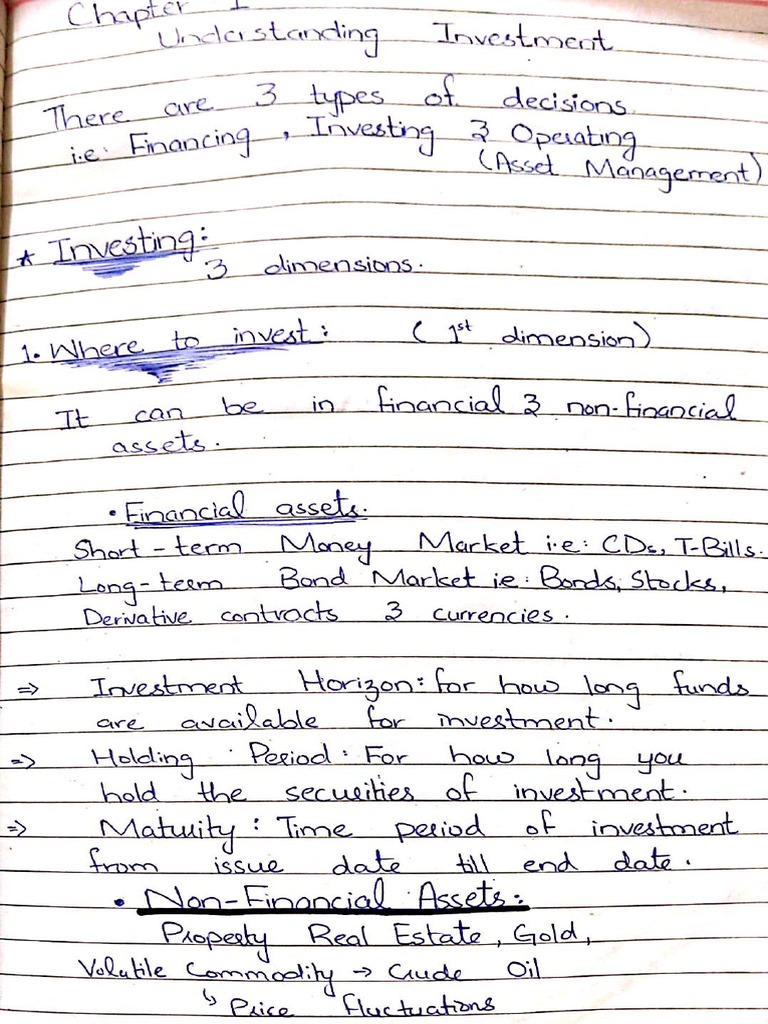 Chapter 1
Understanding Investment
There are 3 types of decisions
i.e: Financing, Investing & Operating
(Asset Management)
* Investing:
3 dimensions.
1. Where to invest: (1st dimension)
It can be in financial & non-financial
assets.
• Financial assets.
Short-term Money Market i.e: CDs, T-Bills.
Long-term Bond Market ie: Bonds, Stocks,
Derivative contracts & currencies.
⇒ Investment Horizon: for how long funds
are available for investment.
⇒ Holding Period: For how long you
hold the securities of investment.
⇒ Maturity: Time period of investment
from issue date till end date.
• Non-Financial Assets:
Property Real Estate, Gold,
Volatile Commodity → Crude Oil
↳ Price fluctuations